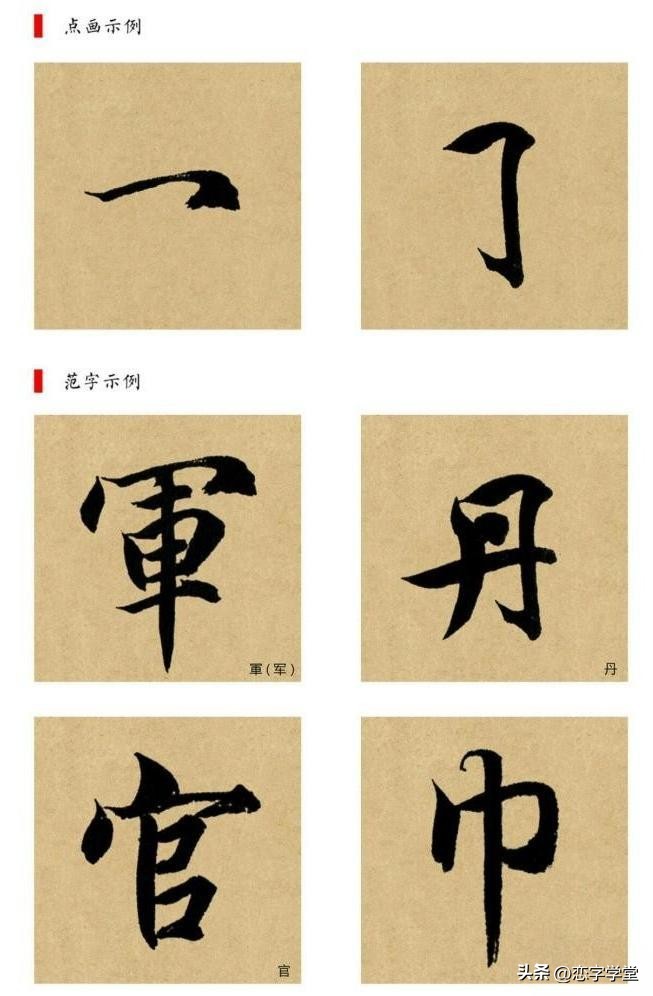 点画示例
范字示例
軍 丹
軍(军) 丹
官 巾
官
头条 @恋字学堂